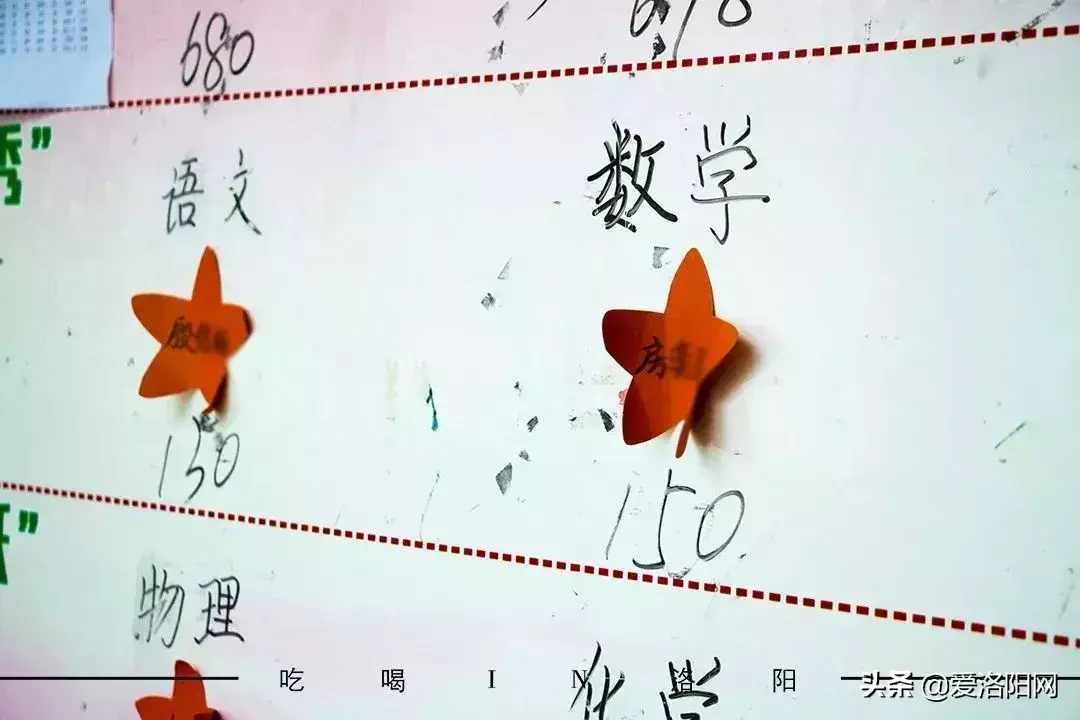 680
698
秀”
语文 数学
殷
房
150 150
”
物理
化学
吃喝IN洛阳
头条 @爱洛阳网